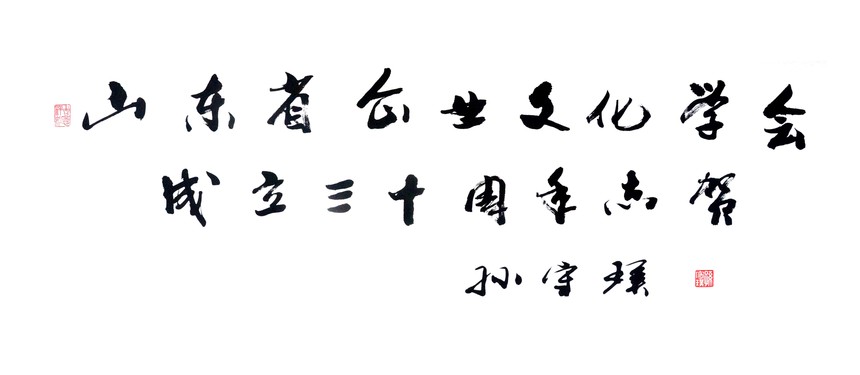 山东省企业文化学会
成立三十周年志贺
孙守璞